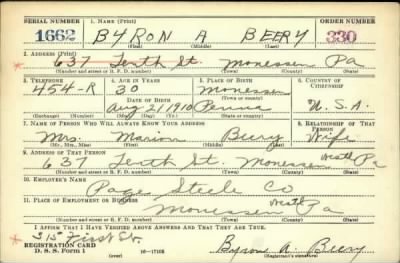 SERIAL NUMBER 1. NAME (Print) ORDER NUMBER
1662 BYRON A BEERY 330
(First) (Middle) (Last)
2. ADDRESS (Print)
637 Tenth St. Monessen Pa
(Number and street or R. F. D. number) (Town) (County) (State)
3. TELEPHONE 4. AGE IN YEARS 5. PLACE OF BIRTH 6. COUNTRY OF CITIZENSHIP
454-R 30 Monessen
DATE OF BIRTH (Town or county)
Aug 21 1910 Penna U.S.A.
(Exchange) (Number) (Mo.) (Day) (Yr.) (State or country)
7. NAME OF PERSON WHO WILL ALWAYS KNOW YOUR ADDRESS 8. RELATIONSHIP OF THAT PERSON
Mrs. Marion Beery Wife
(Mr., Mrs., Miss) (First) (Middle) (Last)
9. ADDRESS OF THAT PERSON
637 Tenth St. Monessen Westd Pa
(Number and street or R. F. D. number) (Town) (County) (State)
10. EMPLOYER'S NAME
Page Steele Co
11. PLACE OF EMPLOYMENT OR BUSINESS
Monessen Westd Pa
(Number and street or R. F. D. number) (Town) (County) (State)
I AFFIRM THAT I HAVE VERIFIED ABOVE ANSWERS AND THAT THEY ARE TRUE.
315 First St.
REGISTRATION CARD
D. S. S. Form 1 (over) 16-17105 Byron A. Beery
(Registrant's signature)